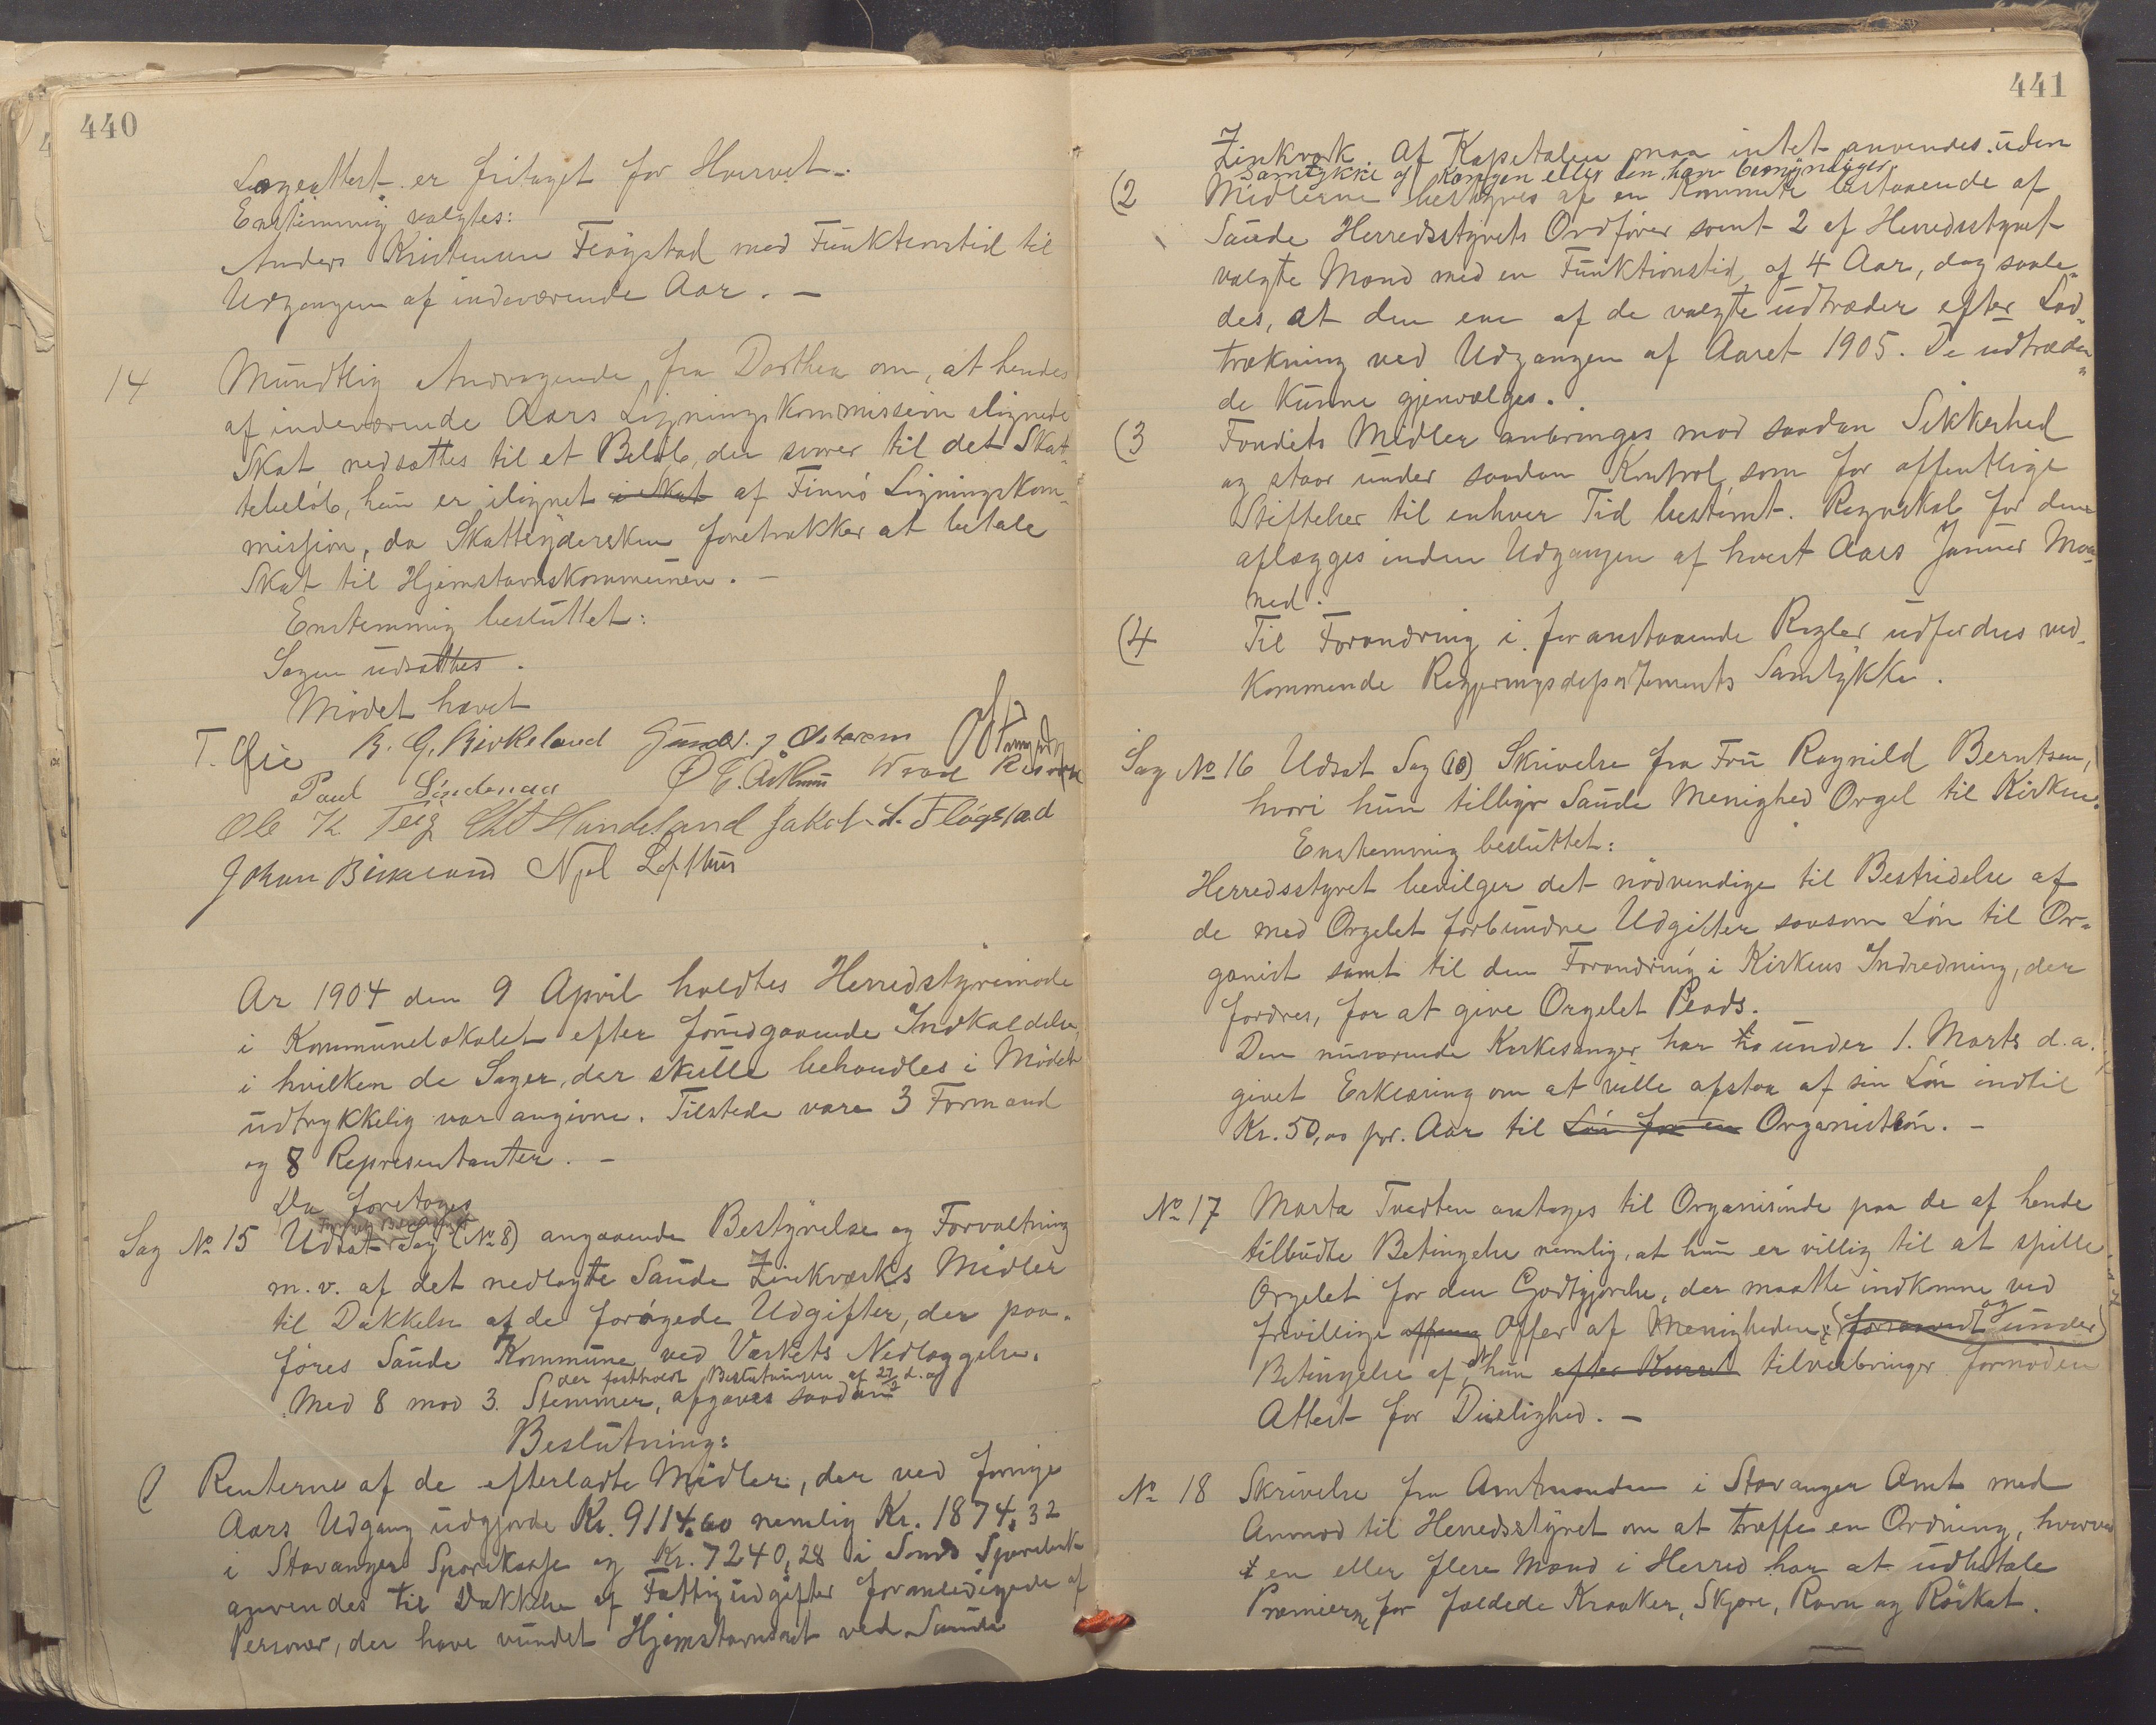 440
Lægeattest er fritaget for Hvervet.
Enstemmig valgtes:
Anders Kristensen Fløgstad med Funktionstid til
Udgangen af indeværende Aar. —
14 Mundtlig Andragende fra Dorthea om, at hendes
af indeværende Aars Ligningskommission ilignede
Skat nedsættes til et Beløb, der svarer til det Skat-
tebeløb, hun er ilignet i Skat af Finnø Ligningskom-
mission, da Skatteydersken foretrækker at betale
Skat til Hjemstavnskommunen. —
Enstemmig besluttet:
Sagen udsættes.
Mødet hævet
T. Øie B. G. Birkeland Gunder J. Østarem
Paul Lindenaa
Ole K Teig Chr Handeland Jakob L. Fløgstad
Johan Birkeland Njel Lofthus
Ar 1904 den 9 April holdtes Herredstyremøde
i Kommunelokalet efter forudgaaende Indkaldelse,
i hvilken de Sager, der skulle behandles i Mødet
udtrykkelig var angivne. Tilstede vare 3 Formænd
og 8 Repræsentanter. —
Da foretoges
Sag No 15 Udsat Sag (No 8) angaaende Bestyrelse og Forvaltning
m. v. af det nedlagte Saude Zinkværks Midler
til Dækkelse af de forøgede Udgifter, der paa-
føres Saude Kommune ved Værkets Nedlæggelse.
der fastholdt Beslutningen af 27/2 d. a.
Med 8 mod 3 Stemmer, afgaves saadan
Beslutning:
(1 Renterne af de efterladte Midler, der ved forrige
Aars Udgang udgjorde Kr. 9114.60 nemlig Kr. 1874,32
i Stavanger Sparekasse og Kr. 7240,28 i Sands Sparebank
anvendes til Dækkelse af Fattigudgifter foranledigede af
Personer, der have vundet Hjemstavnsret ved Saude
441
Zinkværk. Af Kapitalen maa intet anvendes uden
Samtykke af Kongen eller den han bemyndiger
(2 Midlerne bestyres af en Kommite bestaaende af
Saude Herredsstyrets Ordfører samt 2 af Herredsstyret
valgte Mænd med en Funktionstid af 4 Aar, dog saale-
des, at den ene af de valgte udtræder efter Lod-
trækning ved Udgangen af Aaret 1905. De udtræden-
de kunne gjenvælges.
(3 Fondets Midler anbringes mod saadan Sikkerhed
og staar under saadan Kontrol, som for offentlige
Stiftelser til enhver Tid bestemt. Regnskab for dem
aflægges inden Udgangen af hvert Aars Januar Maa-
ned.
(4 Til Forandring i foranstaaende Regler udfordres ved-
kommende Regjeringsdepartements Samtykke.
Sag No 16 Udsat Sag (10) Skrivelse fra Fru Ragnild Berntsen,
hvori hun tilbyr Saude Menighed Orgel til Kirken.
Enstemmig besluttet:
Herredsstyret bevilger det nødvendige til Bestridelse af
de med Orgelet forbundne Udgifter saasom Løn til Or-
ganist samt til den Forandring i Kirkens Indredning, der
fordres, for at give Orgelet Plads.
Den nuværende Kirkesanger har under 1. Marts d. a.
givet Erklæring om at ville afstaa af sin Løn indtil
Kr. 50,00 pr. Aar til Løn for en Organistløn. —
No 17 Marta Tvedten antages til Organistinde paa de af hende
tilbudte Betingelse nemlig, at hun er villig til at spille
Orgelet for den Godtgjørelse, der maatte indkomme ved
frivillige Offer af Menigheden og under
Betingelse af, at hun efter Kurset tilveiebringer fornøden
Attest for Duelighed. —
No 18 Skrivelse fra Amtmanden i Stavanger Amt med
Anmod til Herredsstyret om at træffe en Ordning, hvorved
en eller flere Mænd i Herred har at udbetale
Præmierne for fældede Kraaker, Skjære, Ravn og Røskat.